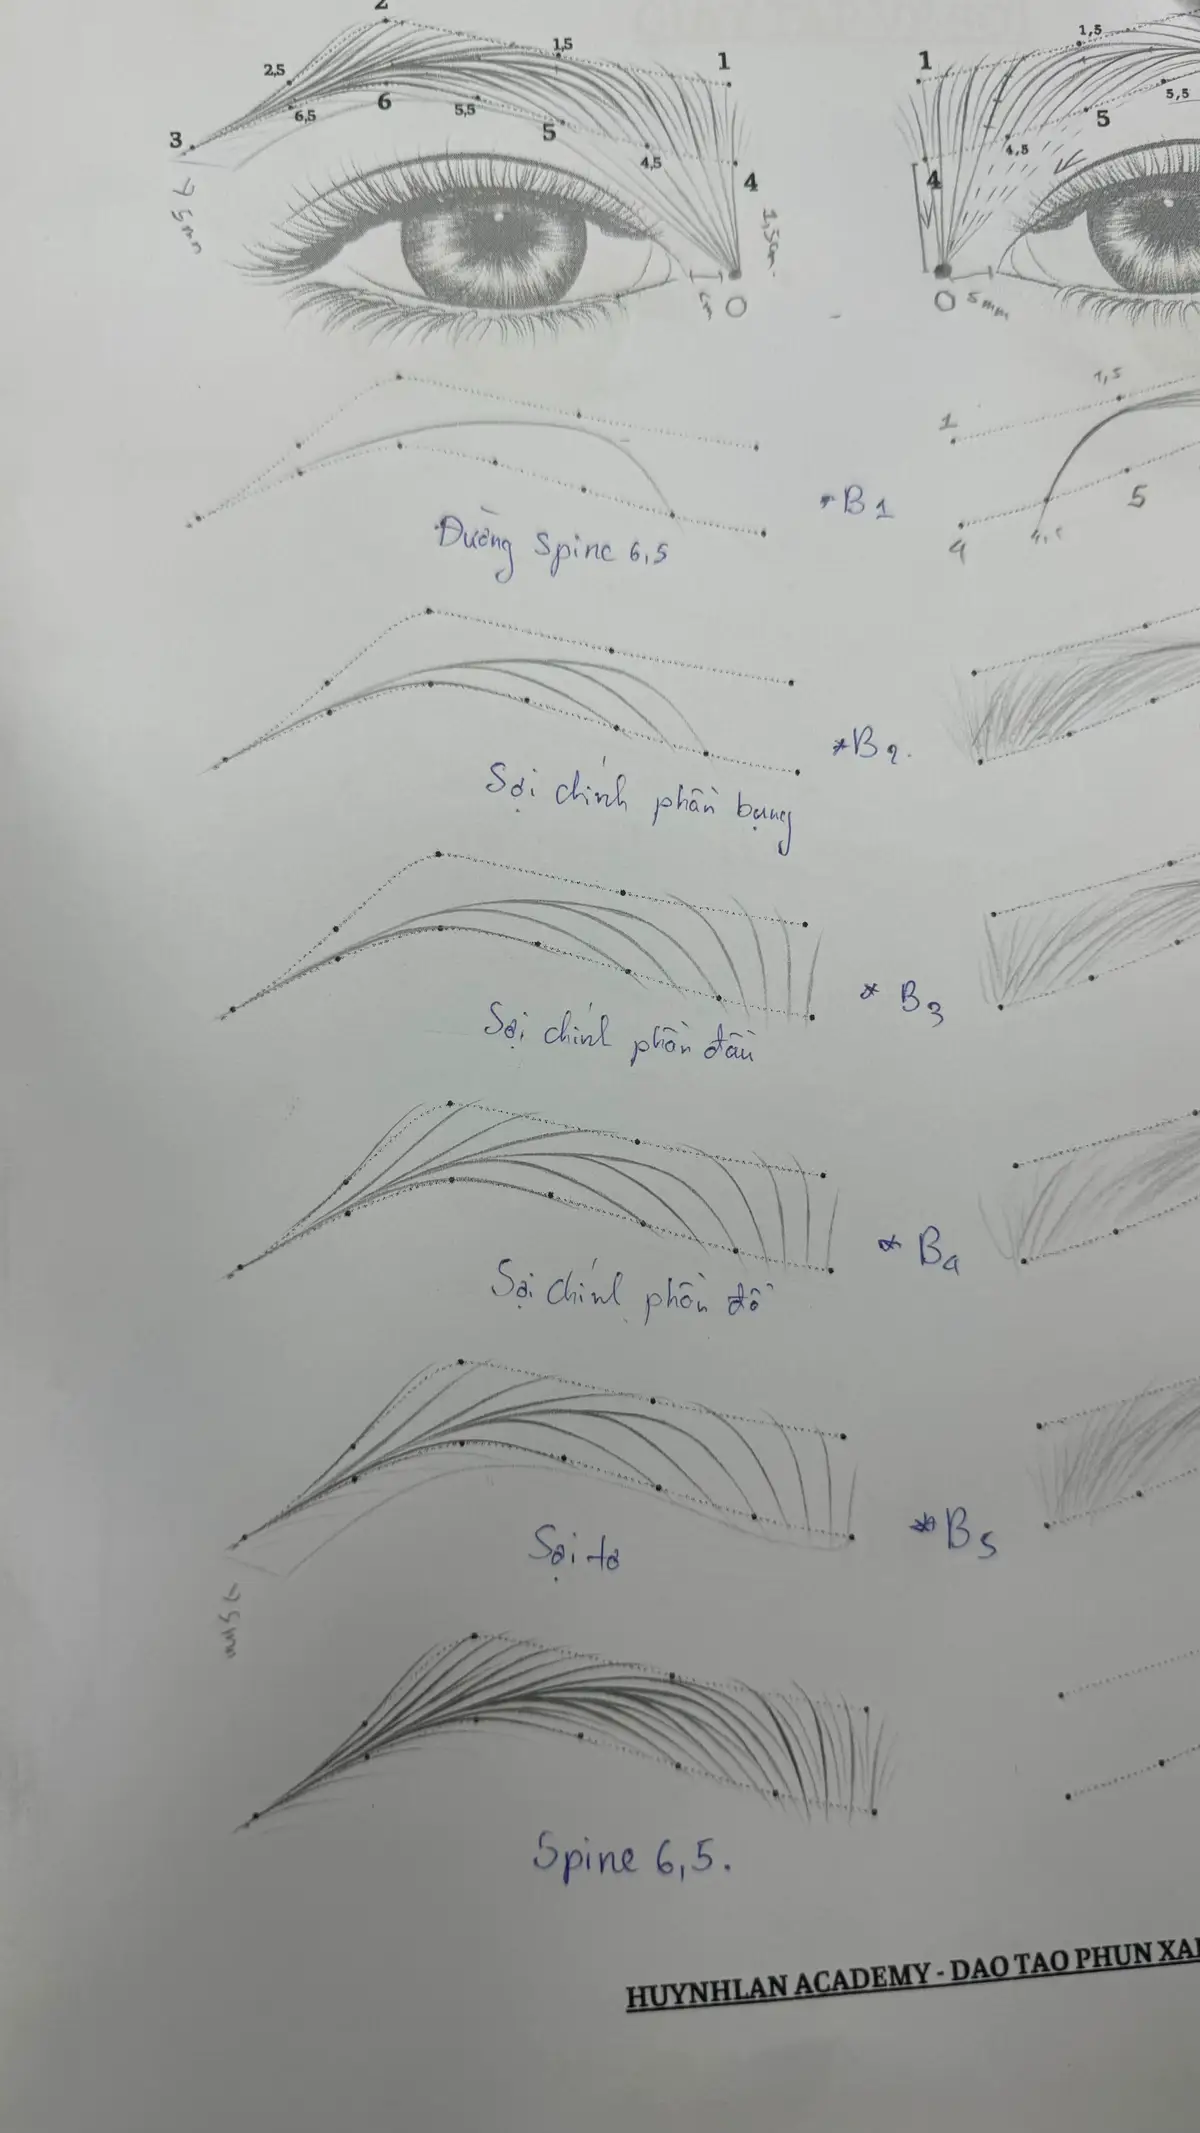 2
1,5
1
1
1,5
2,5
6,5
6
5,5
5
4,5
4
3
4
4,5
5
5,5
5mm
1,5cm
O
O
5mm
1,5
1
Đường Spine 6,5
*B1
5
4
4,5
Sợi chính phần bụng
*B2.
Sợi chính phần đầu
* B3
Sợi chính phần đổ
* B4
Sợi tơ
*B5
5mm
Spine 6,5.
HUYNHLAN ACADEMY - DAO TAO PHUN XA